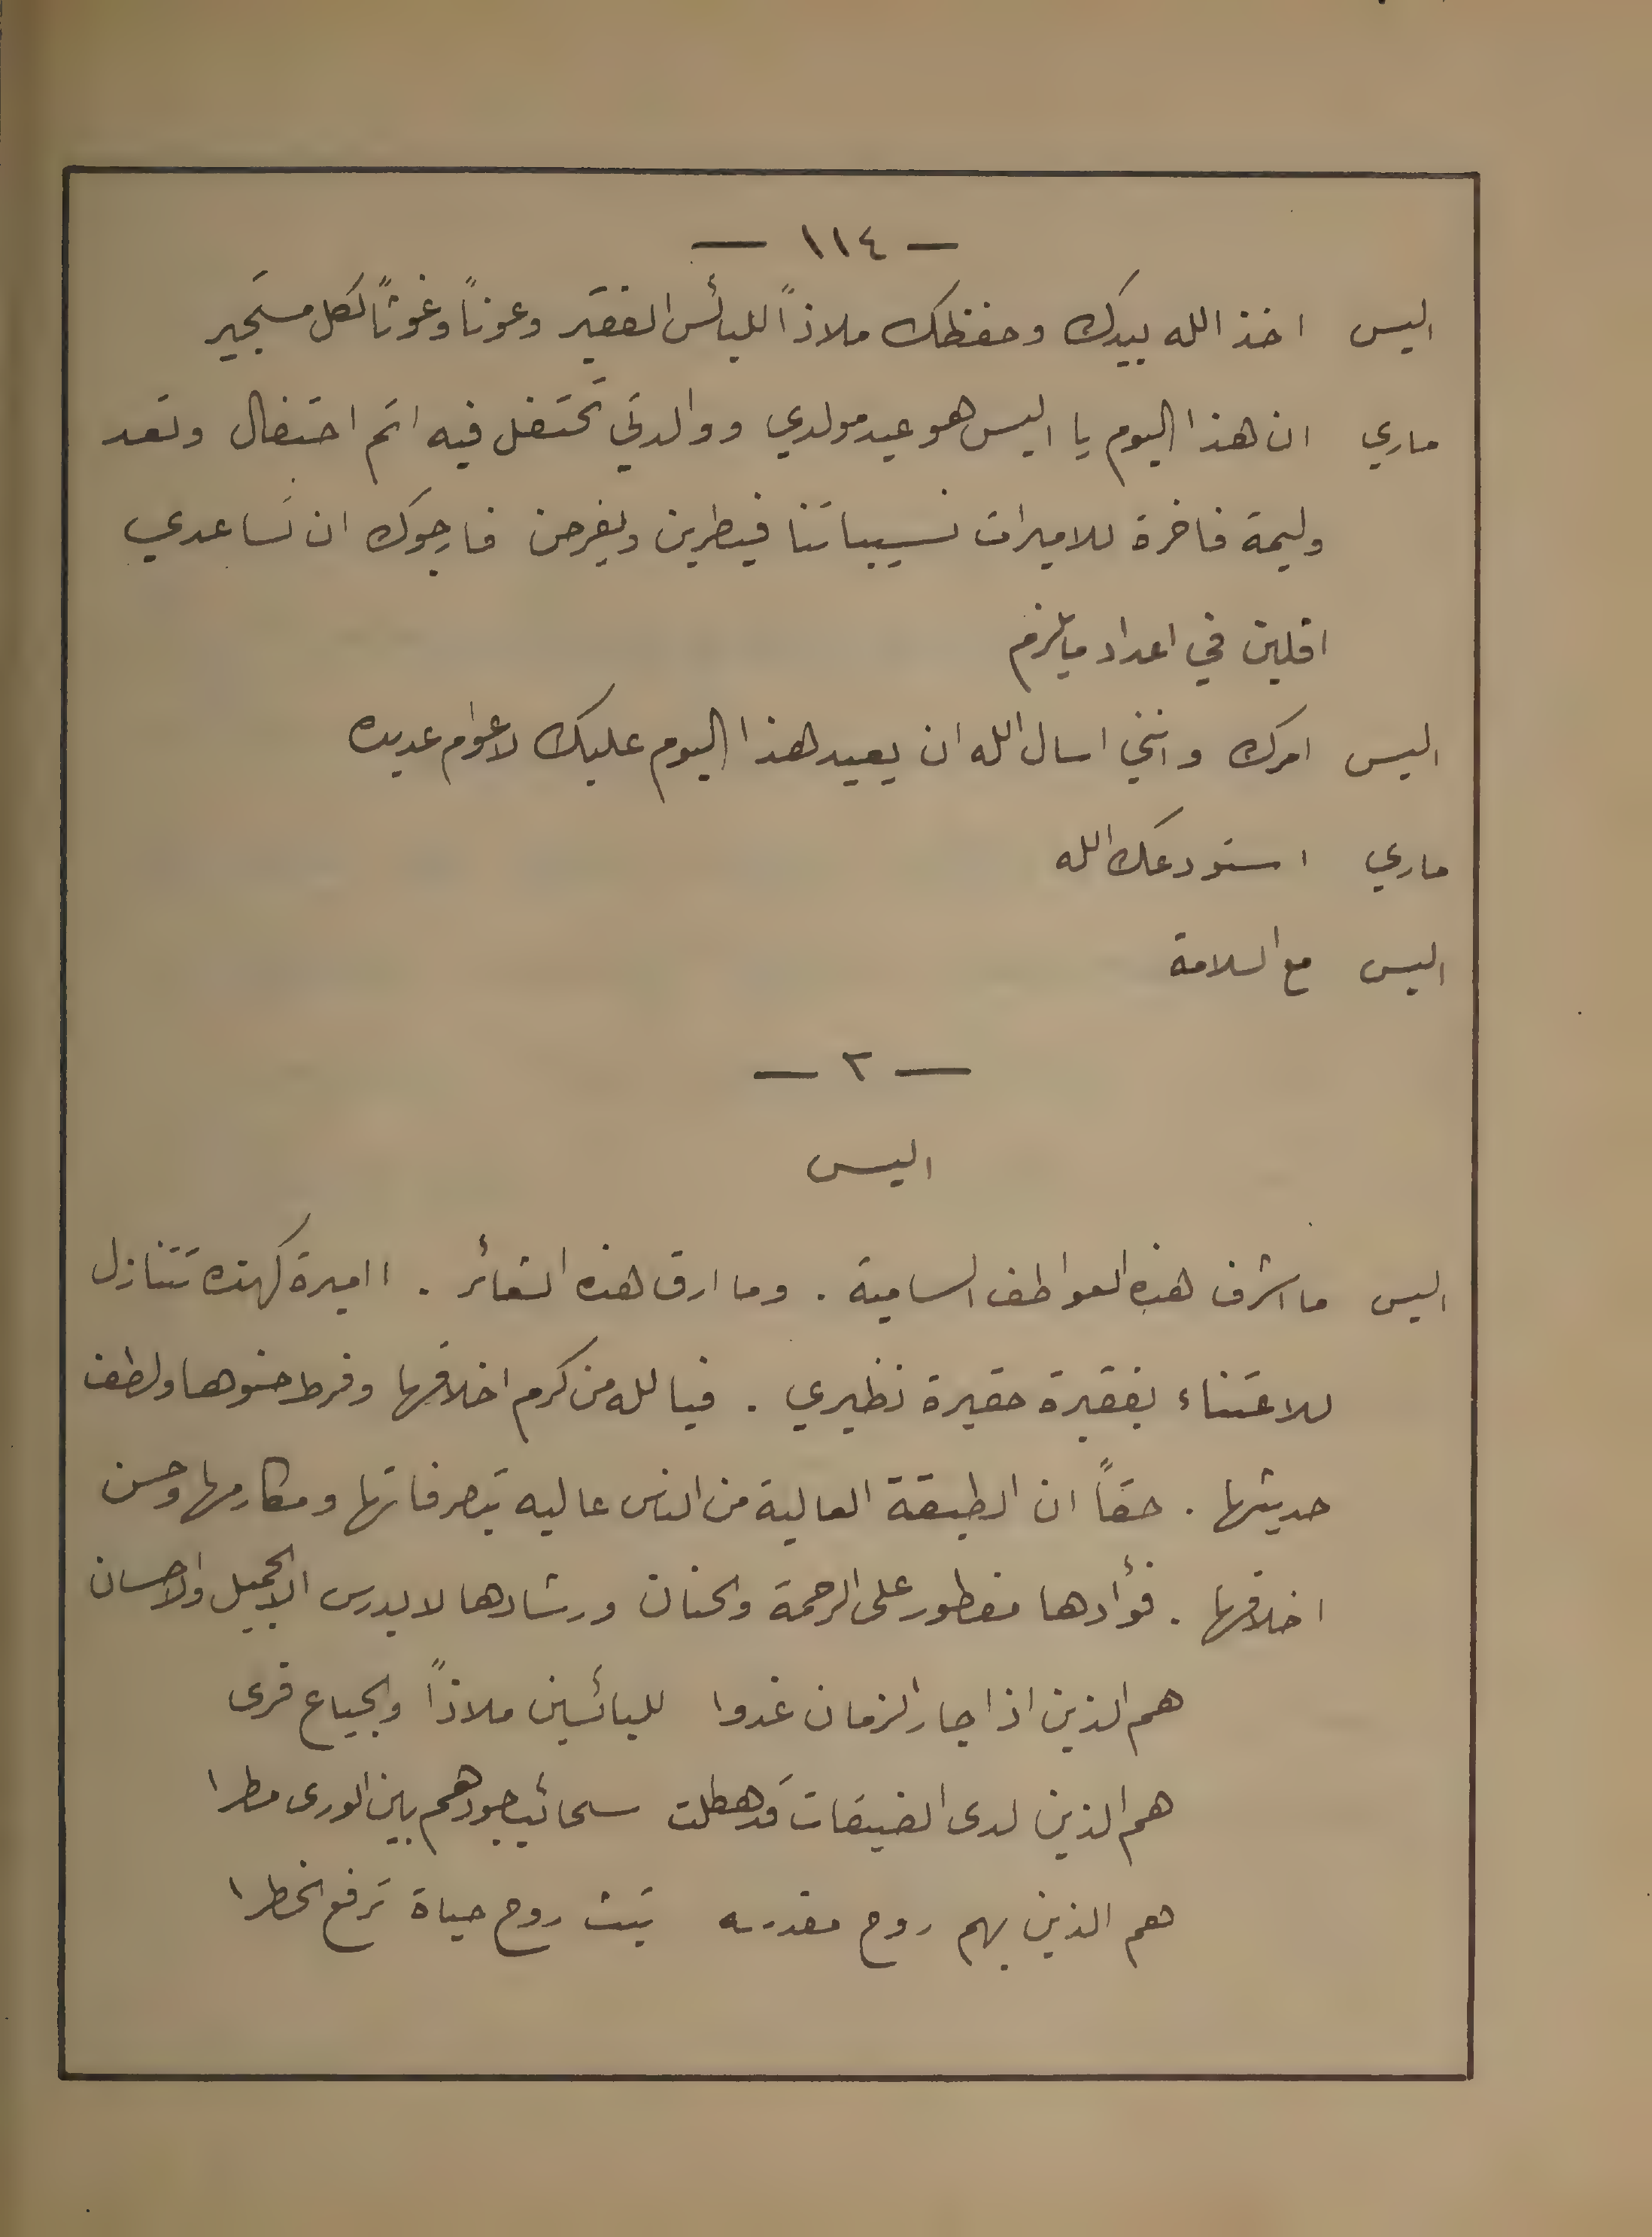 — ١١٤ —
اليس اخذ الله بيدك وحفظك ملاذاً للبائس الفقير وعوناً وغوثاً لكل مستجير
ماري ان هذا اليوم يا اليس هو عيد مولدي ووالدتي تحتفل فيه اتم احتفال وتعد
وليمة فاخرة للاميرات نسيباتنا فيطربن ويفرحن فارجوك ان تساعدي
افلين في اعداد ما يلزم
اليس امرك وانني اسال الله ان يعيد هذا اليوم عليك لاعوام عديده
ماري استودعك الله
اليس مع السلامة
— ٢ —
اليس
اليس ما اشرف هذه العواطف السامية . وما ارق هذه الشعائر . ااميرة كهذه تتنازل
للاعتناء بفقيرة حقيرة نظيري . فيا لله من كرم اخلاقها وفرط حنوها ولطف
حديثها . حقاً ان الطبقة العالية من الناس عاليه بتصرفاتها ومكارمها وحسن
اخلاقها . فؤادها مفطور على الرحمة والحنان ورشادها لا يدرس الا الجميل والاحسان
هم الذين اذا جار الزمان غدوا للبائسين ملاذاً والجياع قرى
هم الذين لدى الضيقات قد هطلت سحائب جودهم بين الورى مطرا
هم الذين بهم روح مقدسه تبث روح حياة ترفع الخطرا